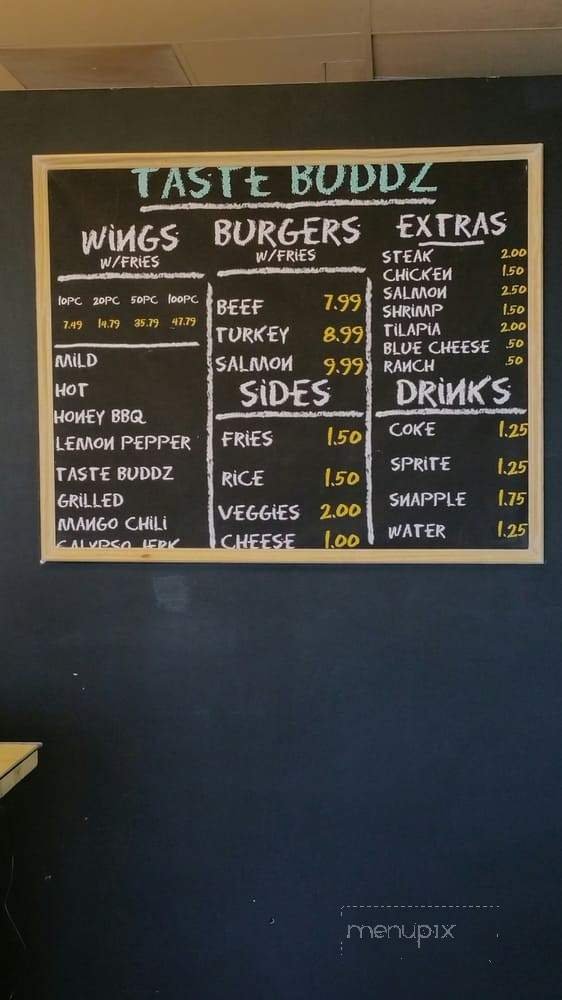 TASTE BUDDZ
WINGS
W/FRIES
10PC 20PC 50PC 100PC
7.49 14.79 35.79 47.79
MILD
HOT
HONEY BBQ
LEMON PEPPER
TASTE BUDDZ
GRILLED
MANGO CHILI
CALYPSO JERK
BURGERS
W/FRIES
BEEF 7.99
TURKEY 8.99
SALMON 9.99
SIDES
FRIES 1.50
RICE 1.50
VEGGIES 2.00
CHEESE 1.00
EXTRAS
STEAK 2.00
CHICKEN 1.50
SALMON 2.50
SHRIMP 1.50
TILAPIA 2.00
BLUE CHEESE .50
RANCH .50
DRINKS
COKE 1.25
SPRITE 1.25
SNAPPLE 1.75
WATER 1.25
menupix